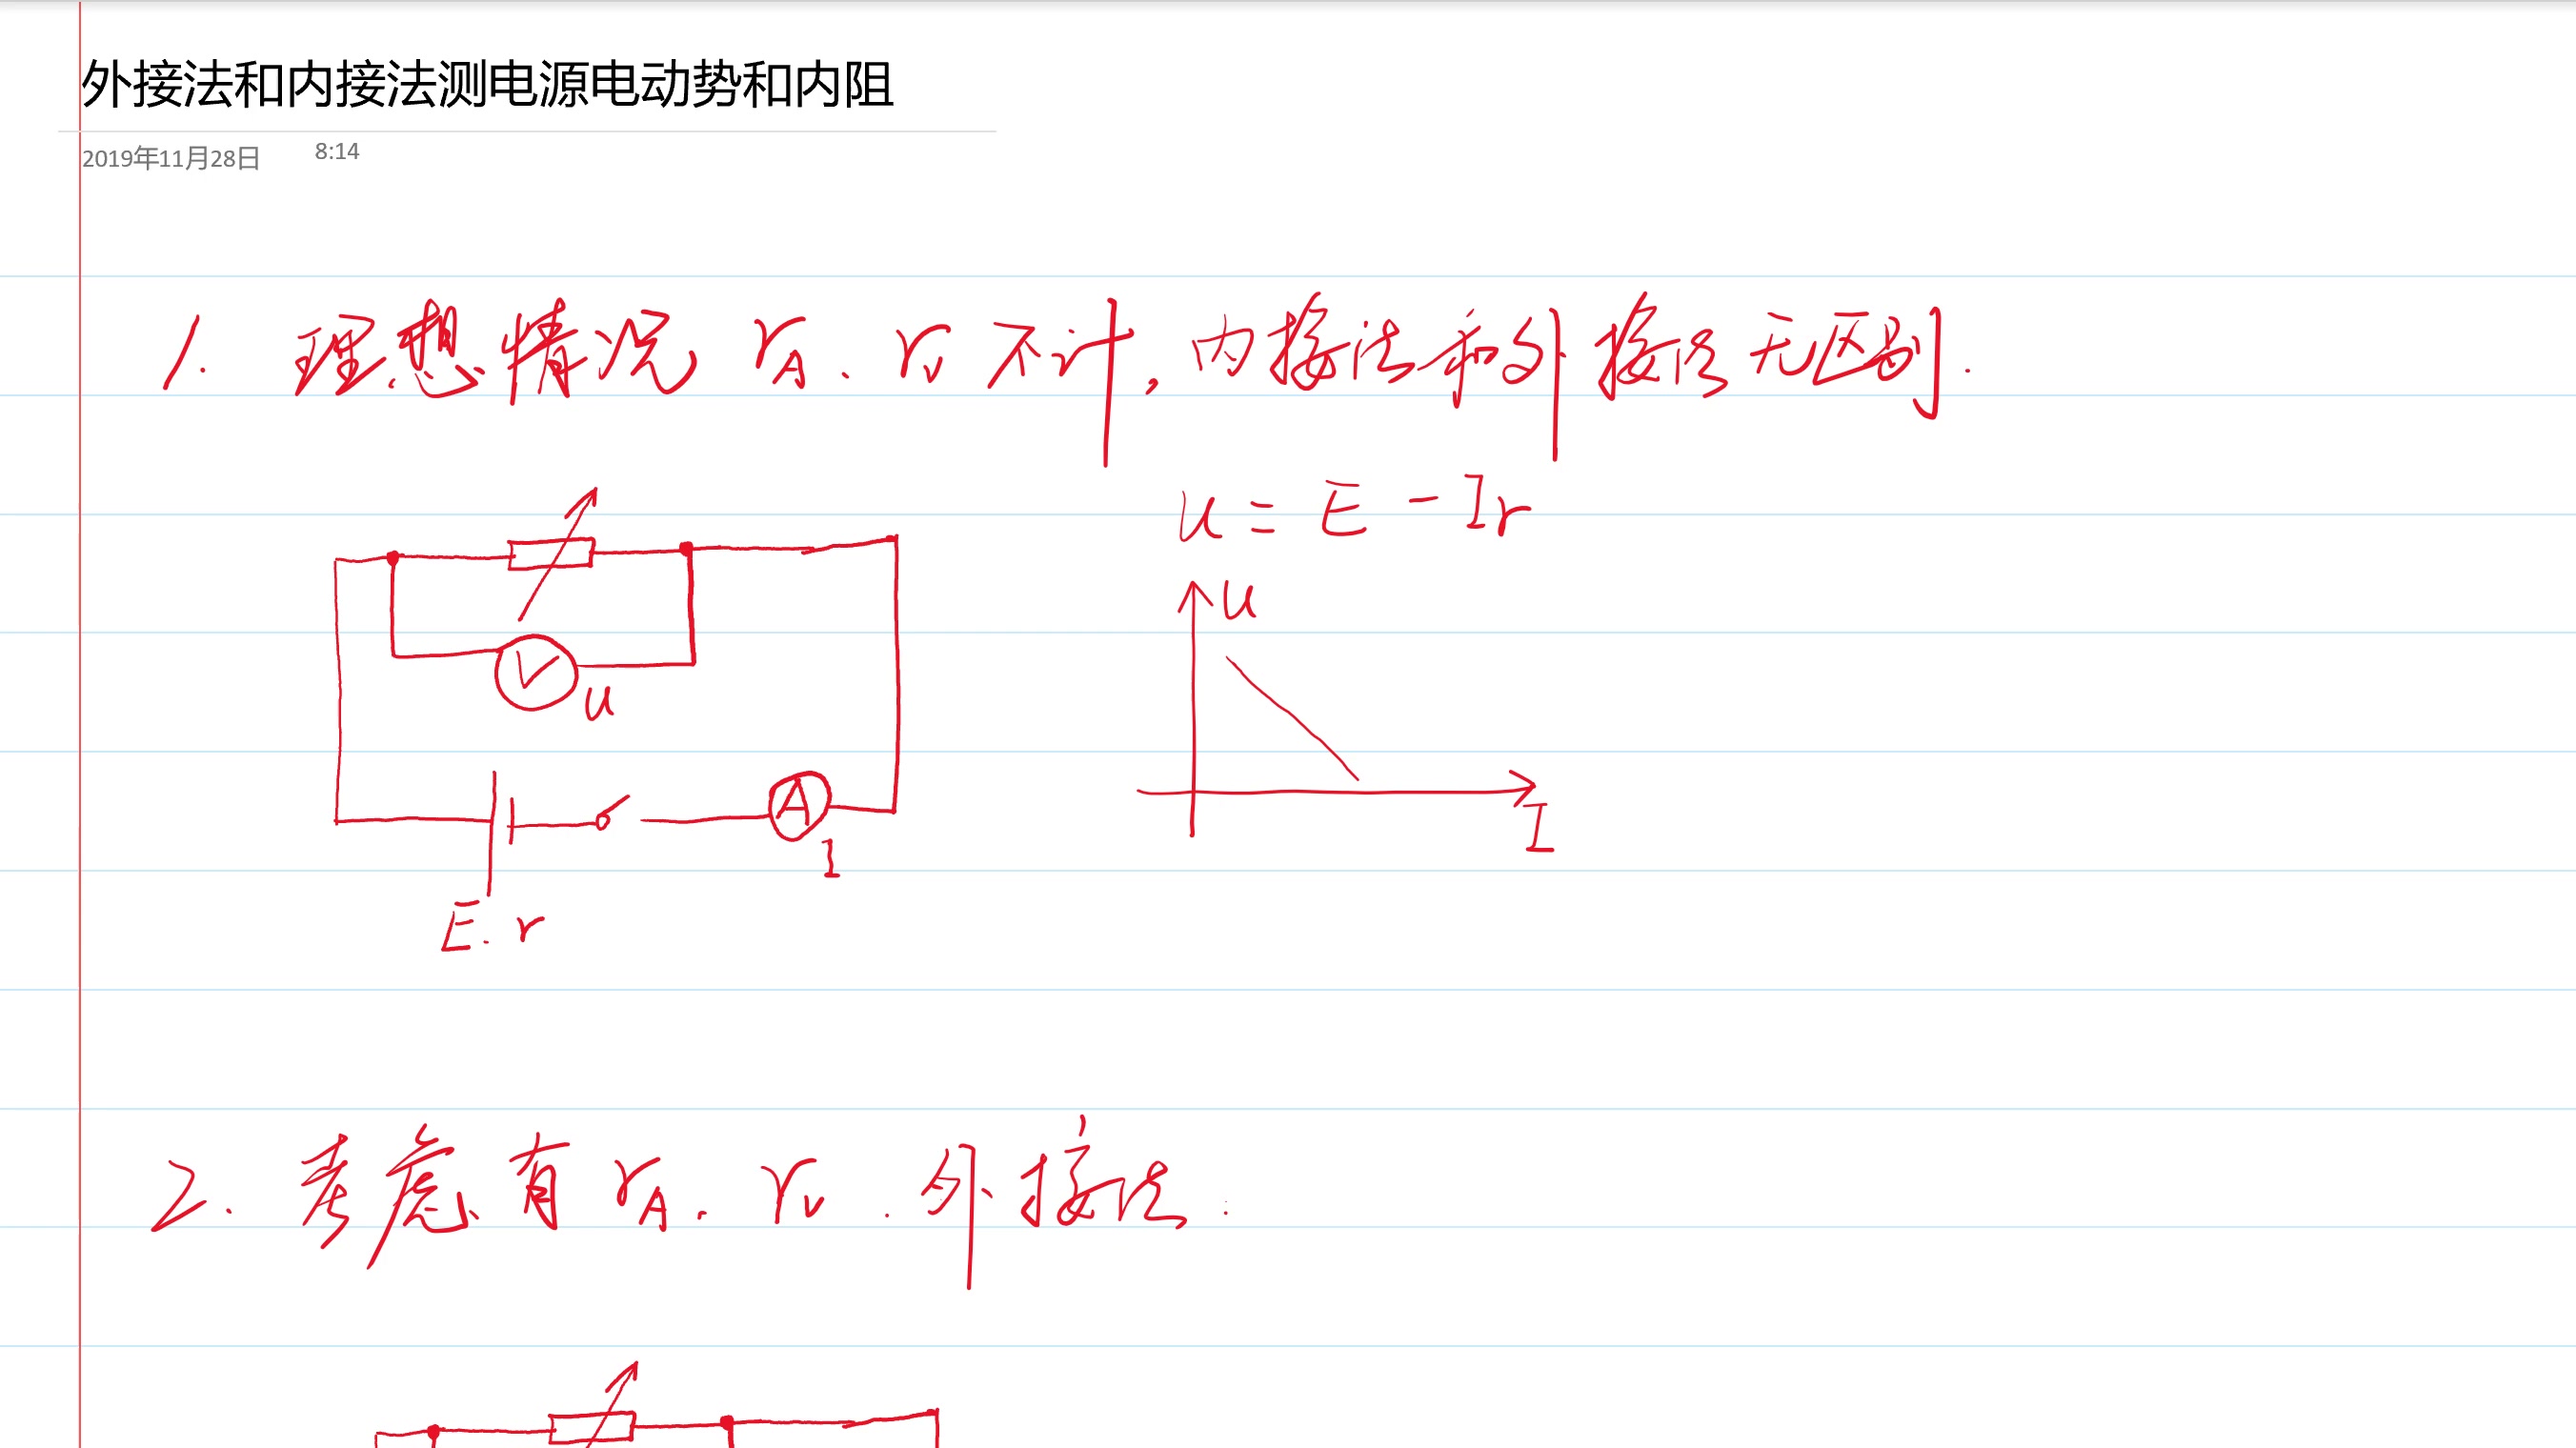 外接法和内接法测电源电动势和内阻
2019年11月28日 8:14
1. 理想情况 rA. rV 不计, 内接法和外接法无区别.
u = E - Ir
u
V
u
A
I
I
E. r
2. 考虑有 rA. rV. 外接法: